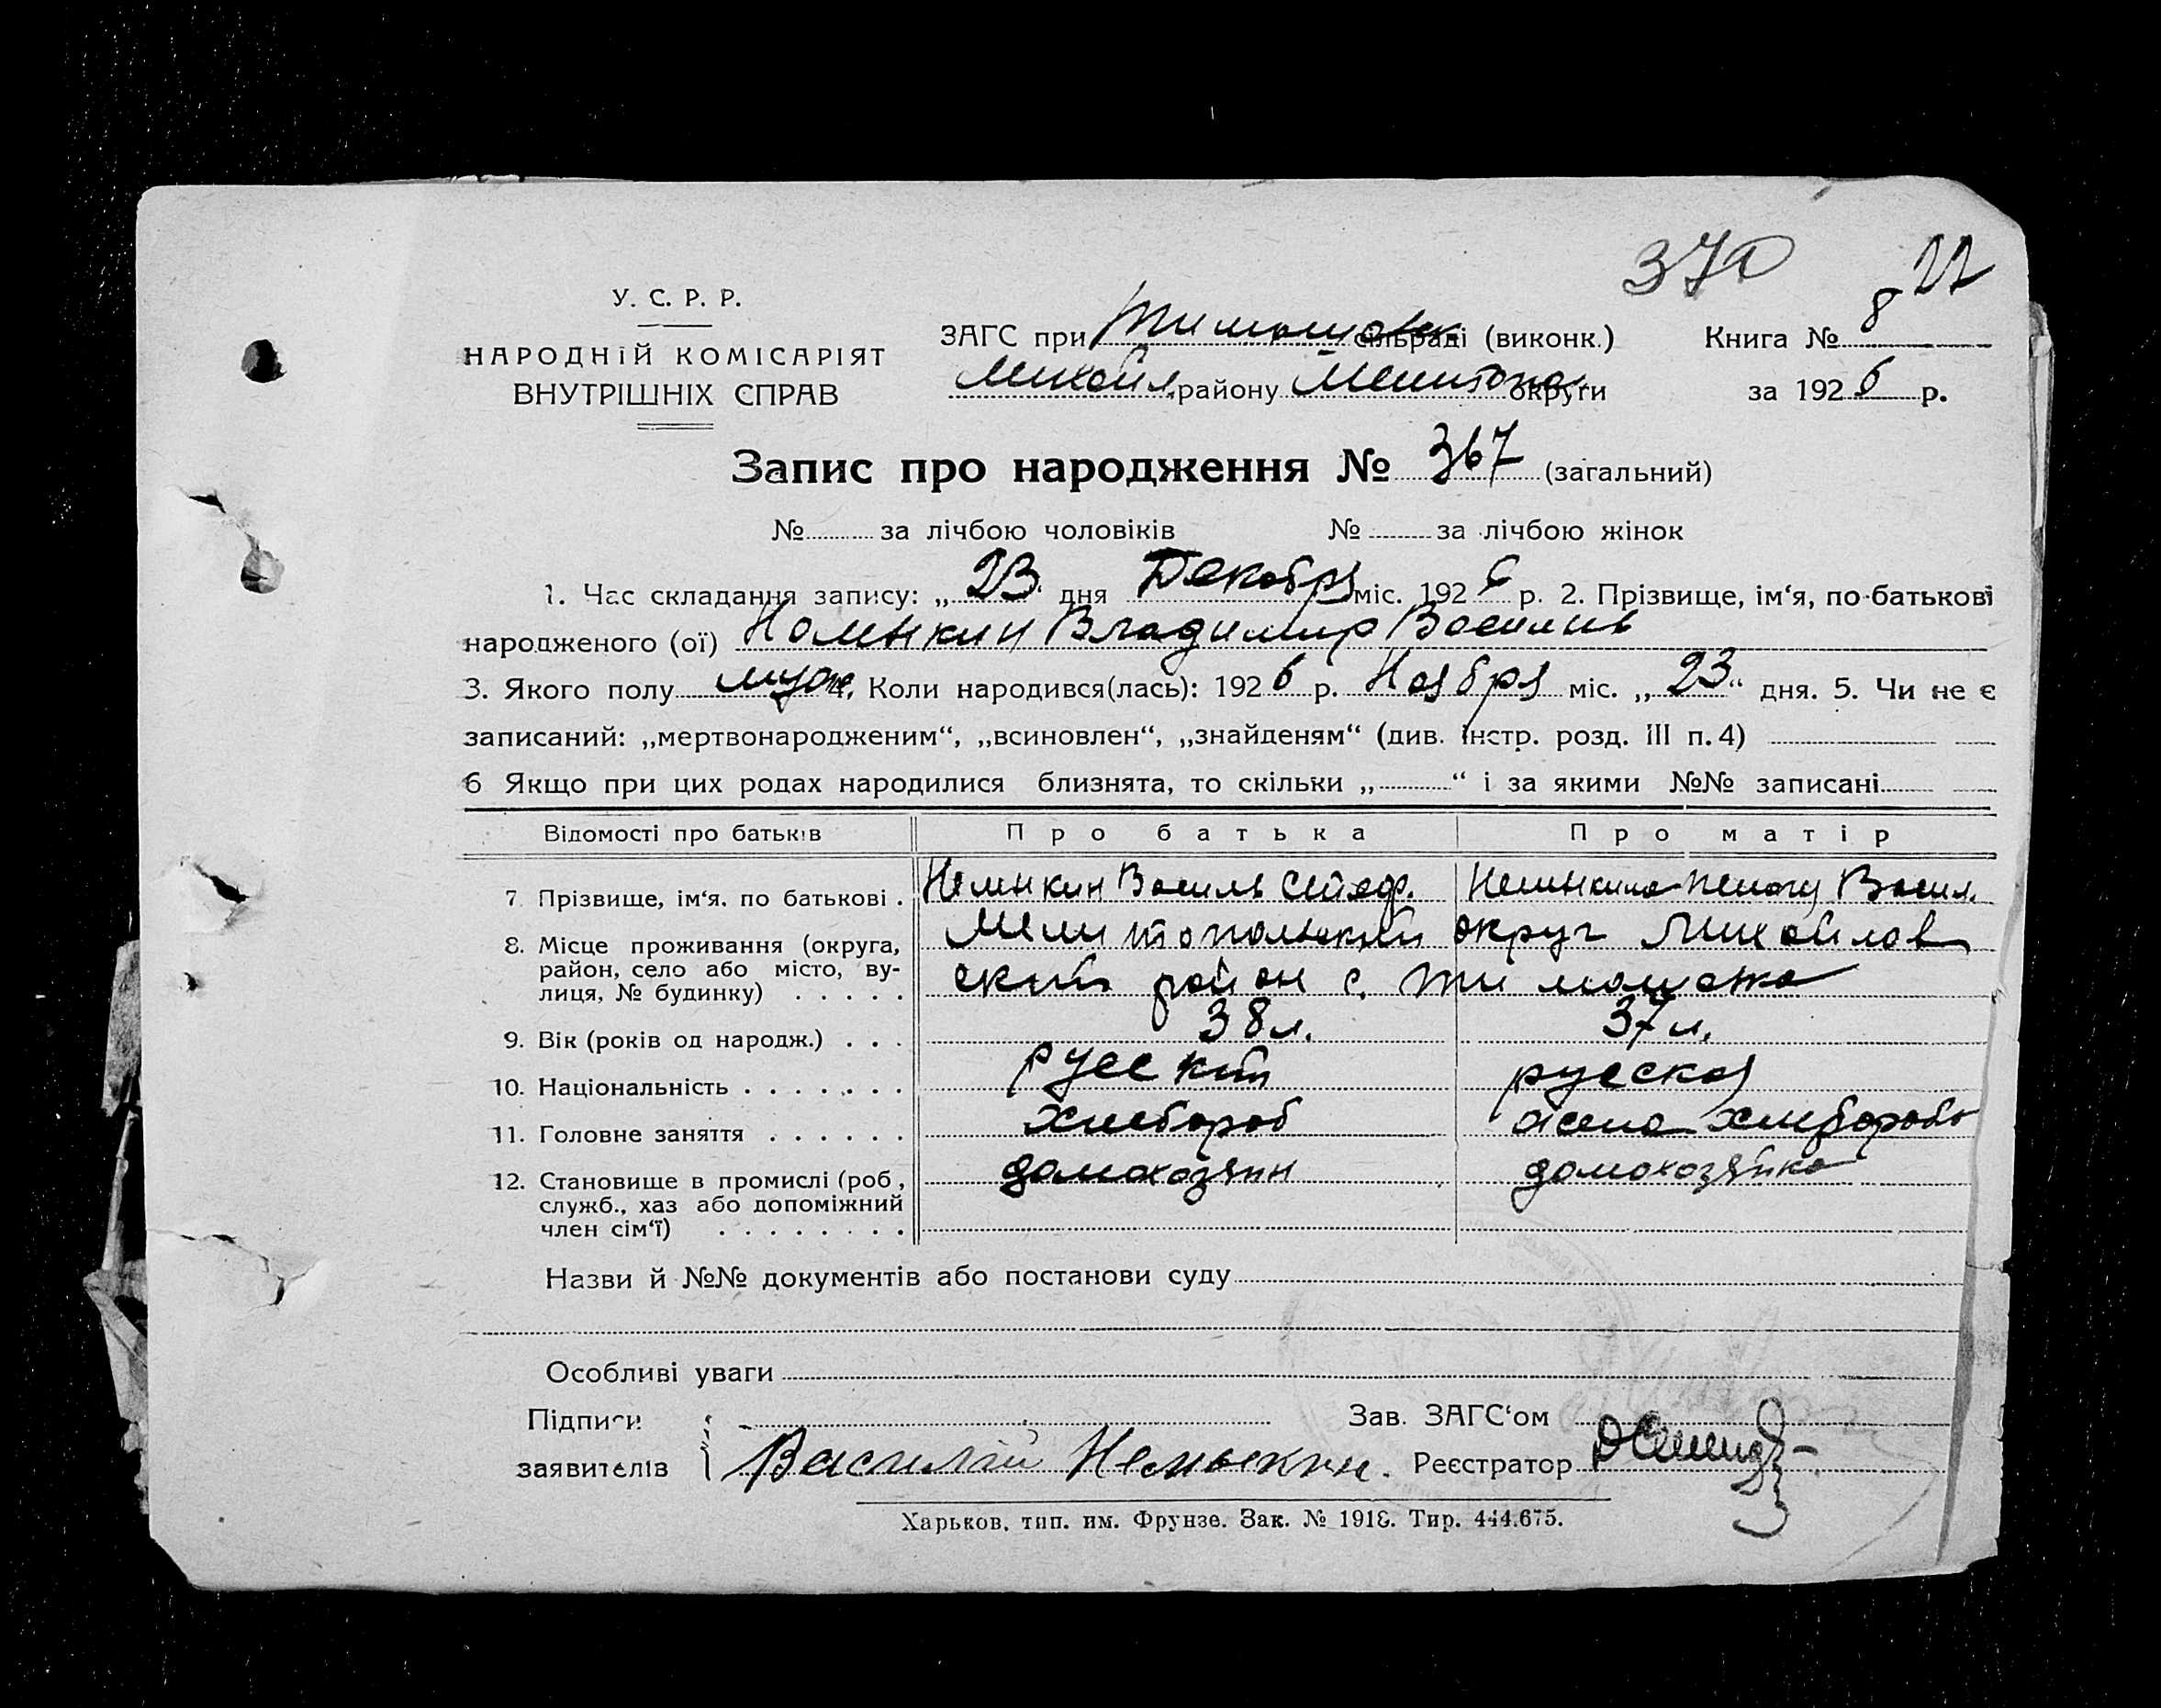 370
22
У. С. Р. Р.
НАРОДНІЙ КОМІСАРІЯТ
ВНУТРІШНІХ СПРАВ
ЗАГС при Тимошовск сільраді (виконк.) Книга № 8
Михайл. району Мелитопол округи за 1926 р.
Запис про народження № 367 (загальний)
№ за лічбою чоловіків № за лічбою жінок
1. Час складання запису: „23" дня Декабря міс. 1926 р. 2. Прізвище, ім'я, по-батькові
народженого (ої) Немыкин Владимир Василив
3. Якого полу муж. 4. Коли народився(лась): 1926 р. Ноября міс. „23" дня. 5. Чи не є
записаний: „мертвонародженим", „всиновлен", „знайденям" (див. інстр. розд. III п. 4)
6 Якщо при цих родах народилися близнята, то скільки „ " і за якими №№ записані
Відомості про батьків Про батька Про матір
7 Прізвище, ім'я. по батькові . Немыкин Василь Стеф. Немыкина Васил.
8. Місце проживання (округа, район, село або місто, вулиця, № будинку) Мелитопольский округ Михайлов
ский район с. Тимошовка
9. Вік (років од народж.) . . . 38 л. 37 л.
10. Національність . . . . . . . русский русская
11. Головне заняття . . . . . . Хлебороб жена хлебороба
12. Становище в промислі (роб, служб., хаз або допоміжний член сім'ї) . . . . . . . . домохозяин домохозяйка
Назви й №№ документів або постанови суду
Особливі уваги
Підписи Зав. ЗАГС'ом
заявителів Василий Немыкин. Реєстратор
Харьков. тип. им. Фрунзе. Зак. № 1918. Тир. 444.675.